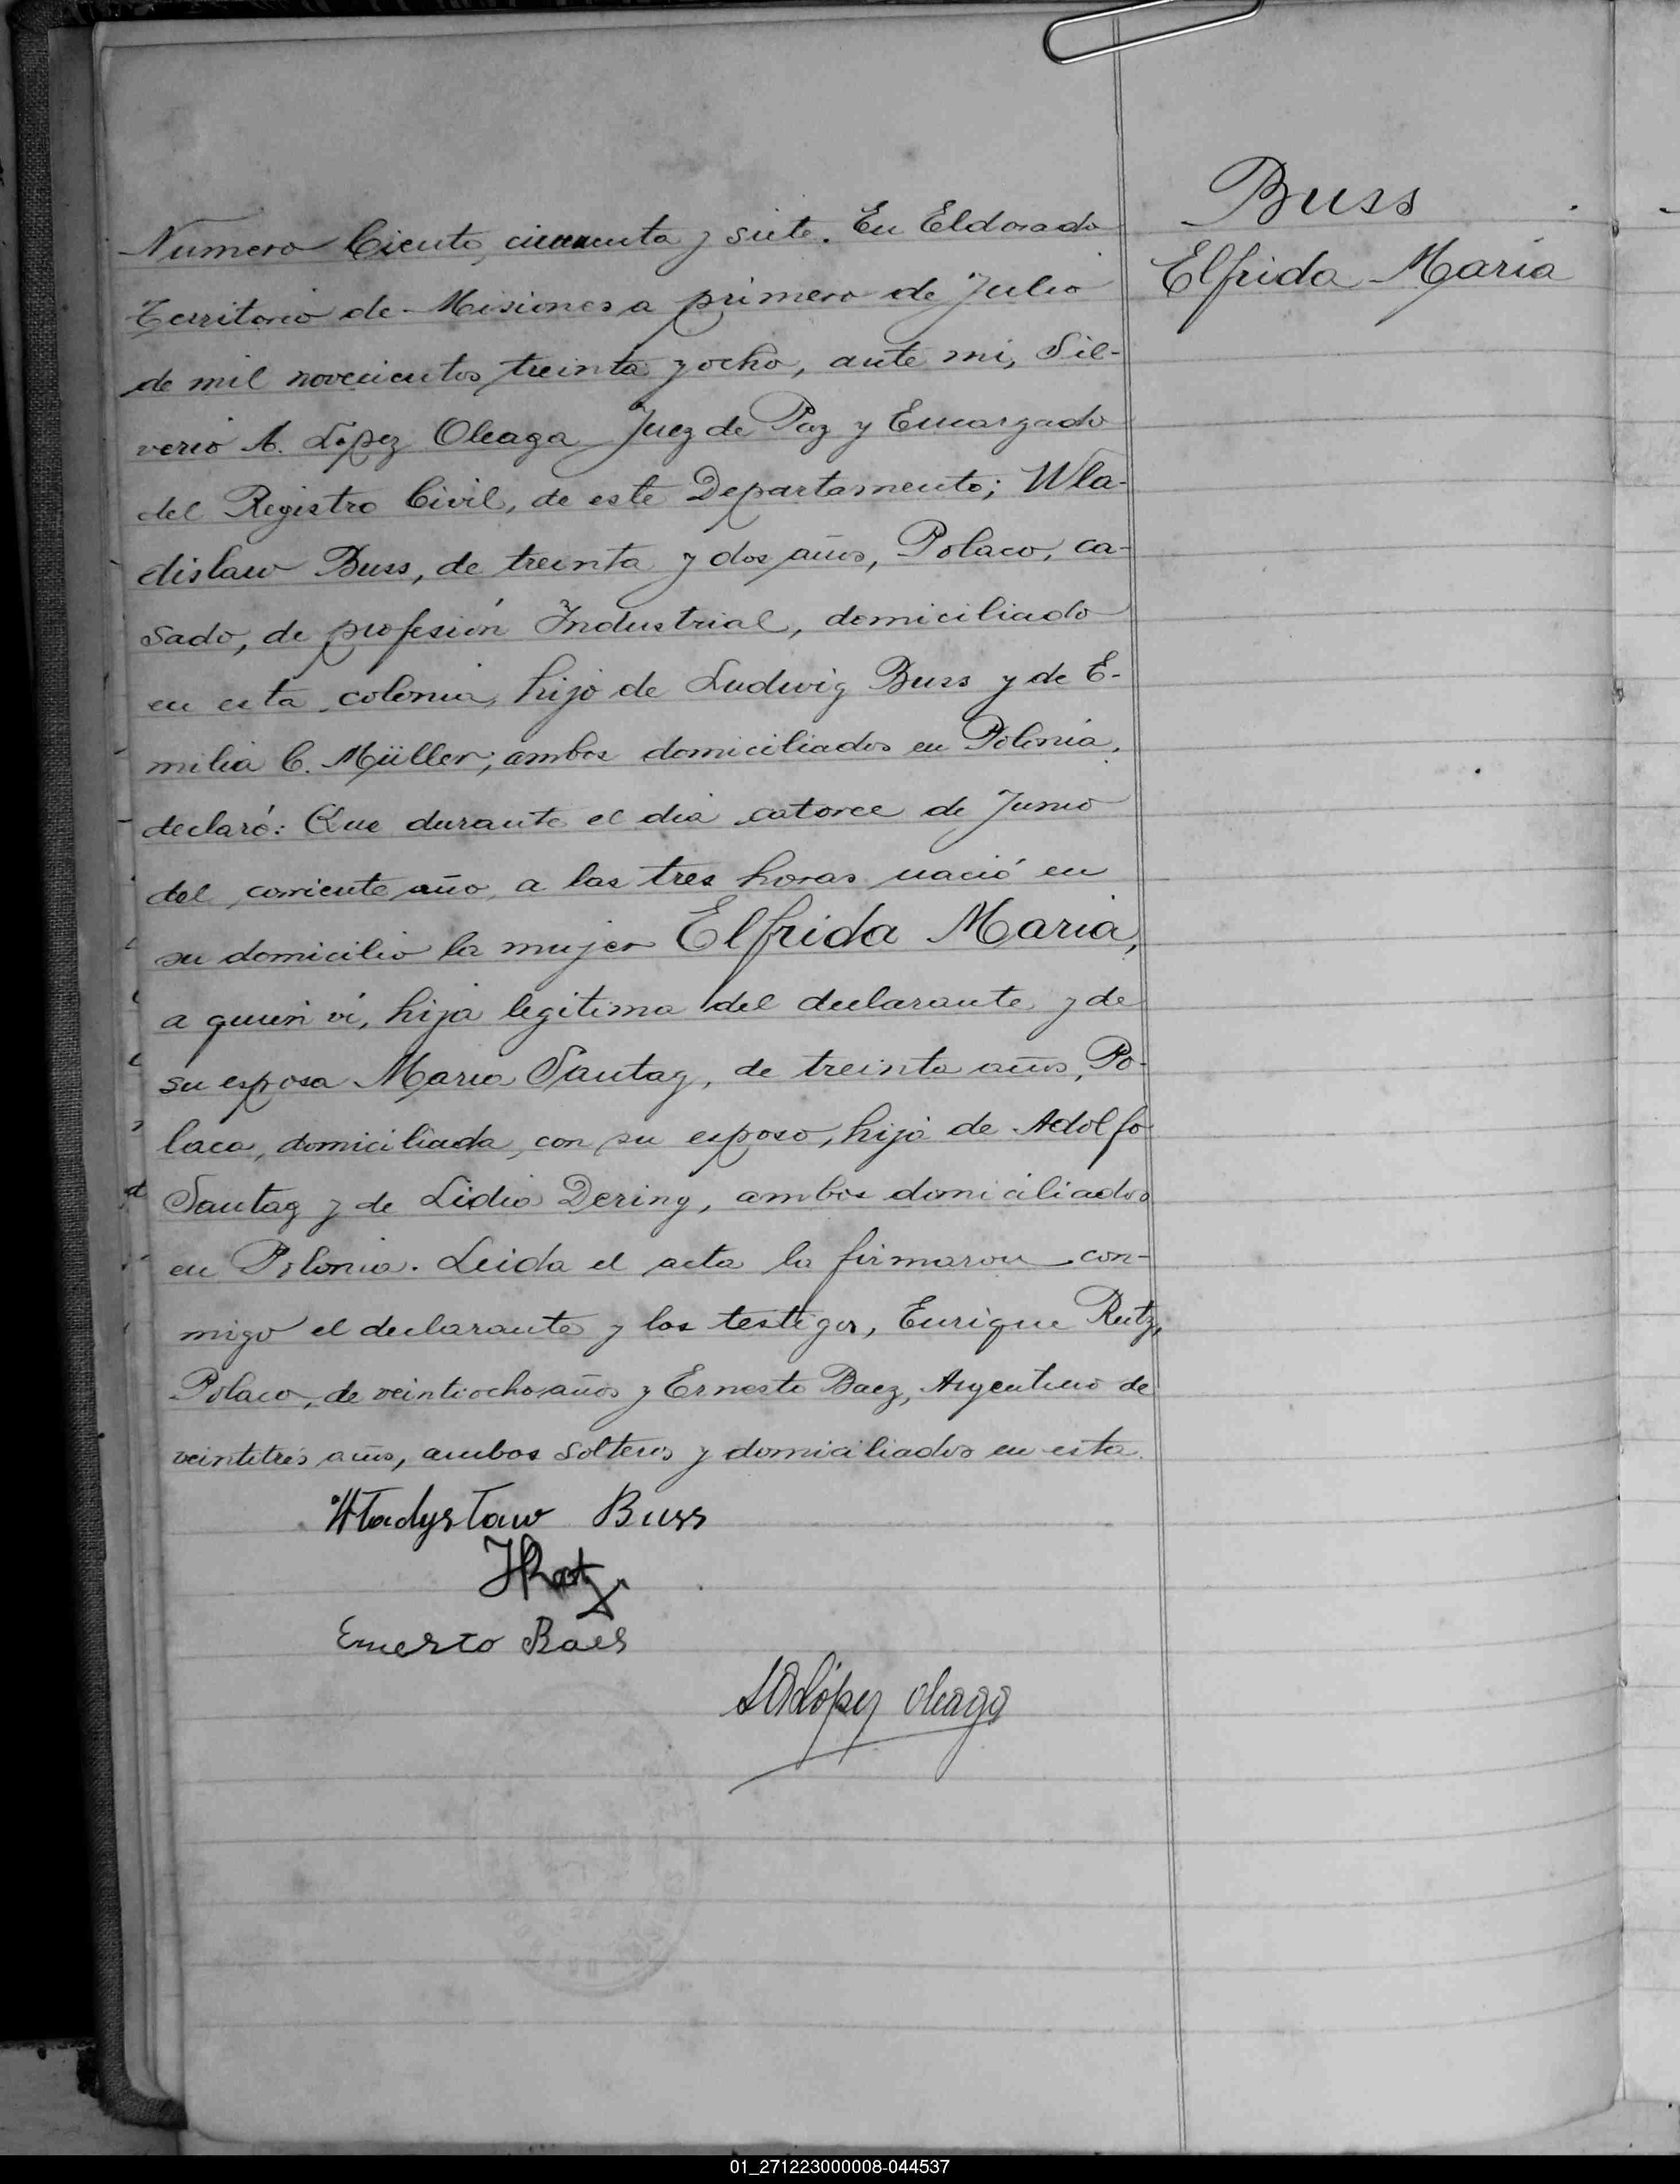 Buss
Elfrida Maria
Numero Ciento cincuenta y siete. En Eldorado
Territorio de Misiones a primero de Julio
de mil novecientos treinta y ocho, ante mi, Sil-
verio A. López Oleaga Juez de Paz y Encargado
del Registro Civil, de este Departamento; Wla-
dislaw Buss, de treinta y dos años, Polaco, ca-
sado, de profesión Industrial, domiciliado
en esta colonia, hijo de Ludwig Buss y de E-
milia C. Müller; ambos domiciliados en Polonia,
declaró: Que durante el dia catorce de Junio
del corriente año, a las tres horas nació en
su domicilio la mujer Elfrida Maria,
a quien ví, hija legitima del declarante y de
su esposa Maria Santag, de treinta años, Po-
laca, domiciliada con su esposo, hija de Adolfo
Santag y de Lidia Dering, ambos domiciliados
en Polonia. Leida el acta la firmaron con-
migo el declarante y los testigos, Enrique Rutz,
Polaco, de veintiocho años y Ernesto Baez, Argentino de
veintitrés años, ambos solteros y domiciliados en esta.
Władysław Buss
Ernesto Baes
SALópez Oleaga
01_271223000008-044537